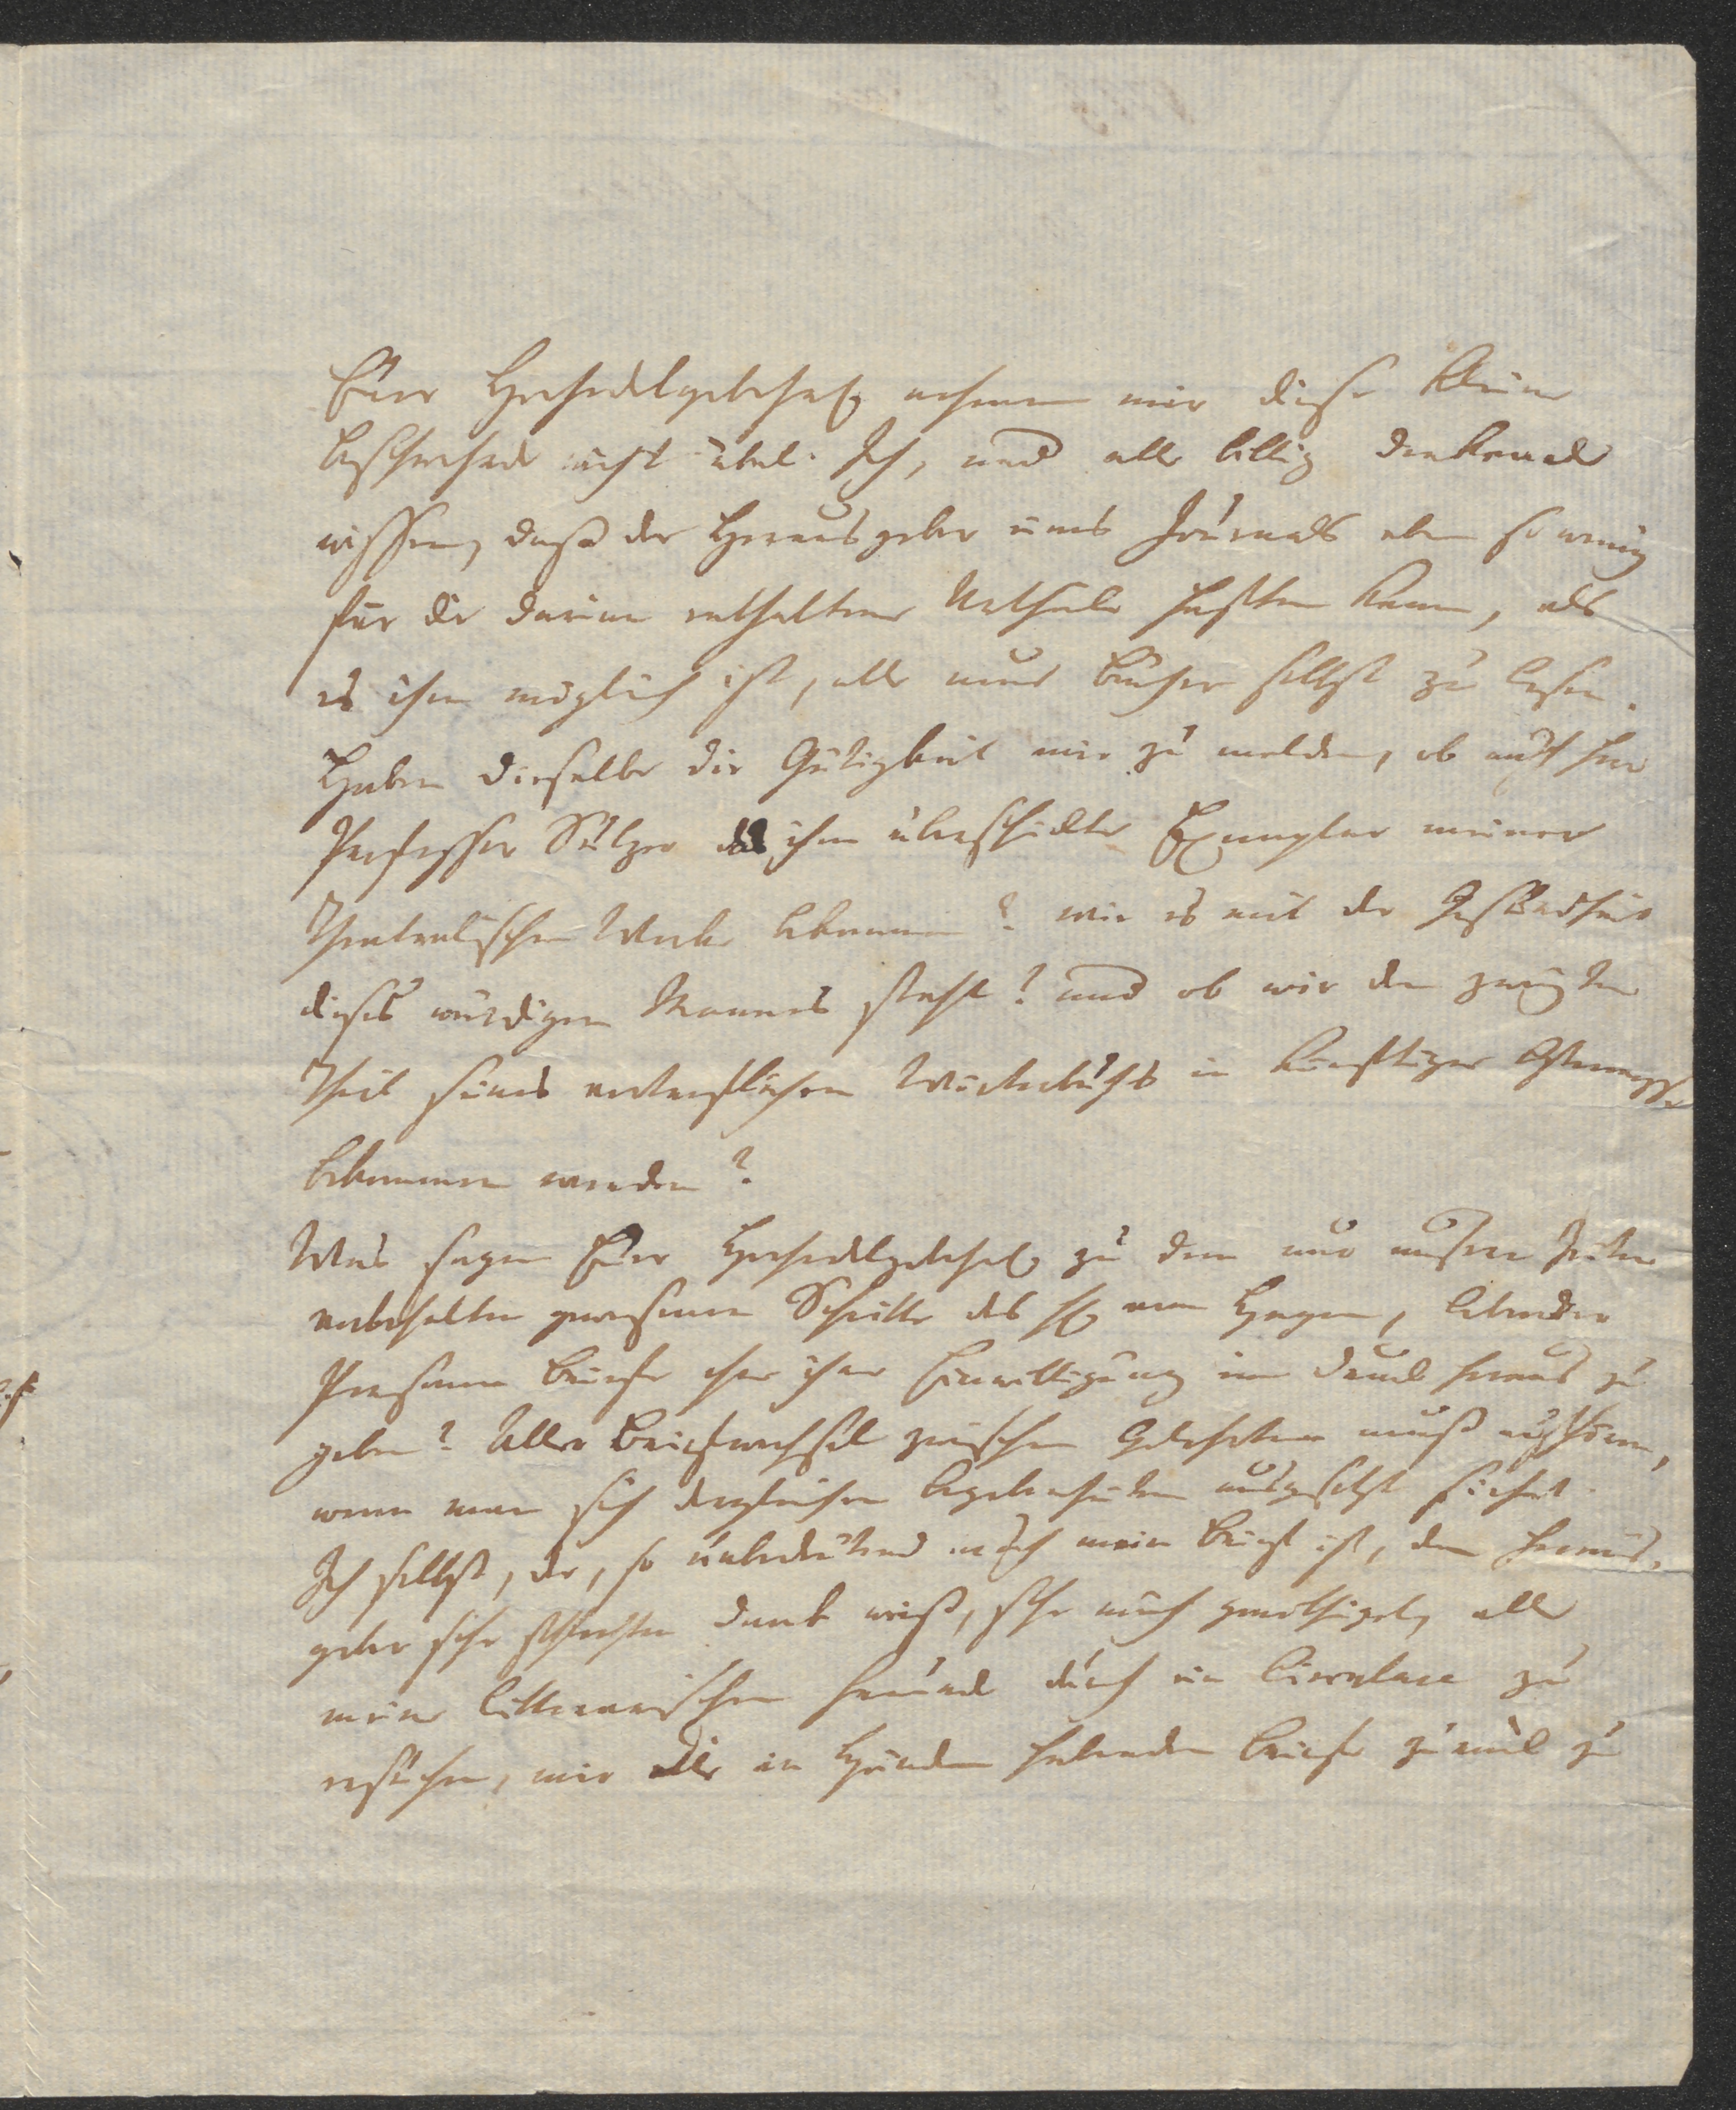 Euer Hochedelgebohrn nehmen mir diese kleine
Beschwerde nicht übel. Ich, und alle billig denkende
wissen, daß der Herausgeber eines Journals eben so wenig
für die darinn enthaltene Urtheile haften kann, als
es ihm möglich ist, alle neue Bücher selbst zu lesen.
Haben dieselbe die Gütigkeit mir zu melden, ob auch Herr
Professor Sulzer das ihm überschickte Exemplar meiner
Theatralischen Werke bekommen? wie es mit der Gesundheit
dieses würdigen Mannes steht? und ob wir den zweyten
Theil seines vortreflichen Wörterbuchs in künftiger Ostermesse
bekommen werden?
Was sagen Euer Hochedelgebohrn zu dem nur unsern Zeiten
vorbehalten gewesenen Schritte des H. von Hagen, lebender
Personen Briefe ohne ihre Einwilligung im Druck heraus zu
geben? Aller Briefwechsel zwischen Gelehrten muß aufhören,
wenn man sich dergleichen Begebenheiten ausgesetzt siehet.
Ich selbst, der, so unbedeutend auch mein Brief ist, dem Heraus-
geber sehr schlechten Dank weiß, sehe mich genöthiget, alle
meine litterarischen Freunde durch ein Circulare zu
ersuchen, mir alle in Händen habenden Briefe zurück zu